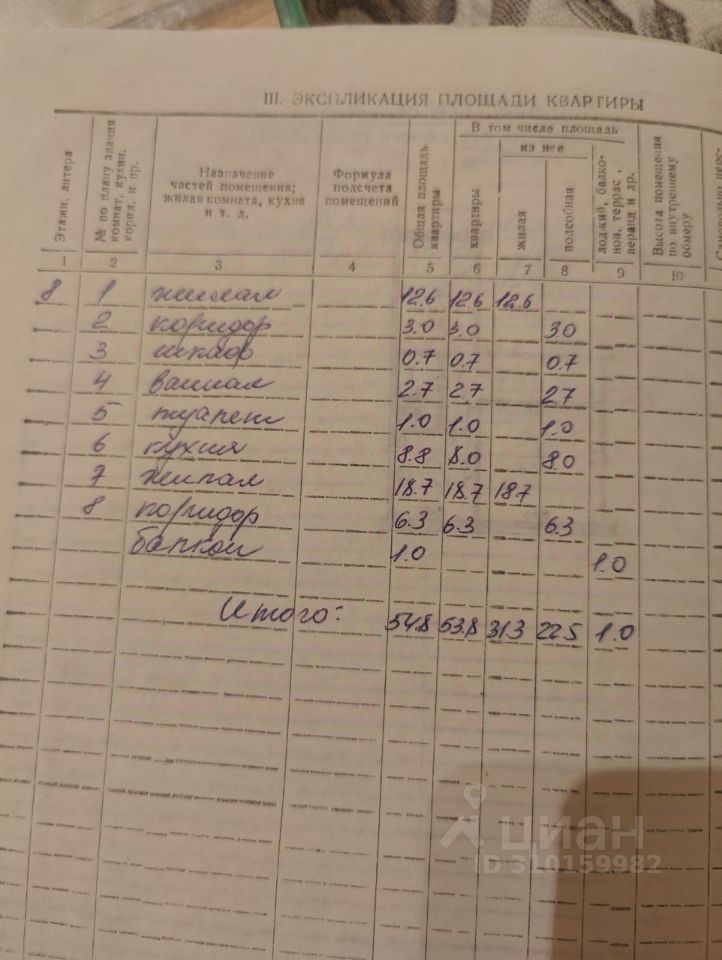 III. ЭКСПЛИКАЦИЯ ПЛОЩАДИ КВАРТИРЫ
Этажи, литера
№ по плану здания комнат, кухни, корид. и пр.
Назначение частей помещения; жилая комната, кухня и т. д.
Формула подсчета помещений
Общая площадь квартиры
В том числе площадь
из нее
квартиры
жилая
подсобная
лоджий, балконов, террас, веранд и др.
Высота помещения по внутреннему обмеру
1 2 3 4 5 6 7 8 9 10
8 1 жилая 12.6 12.6 12.6
2 коридор 3.0 3.0 3.0
3 шкаф 0.7 0.7 0.7
4 ванная 2.7 2.7 2.7
5 туалет 1.0 1.0 1.0
6 кухня 8.8 8.0 8.0
7 жилая 18.7 18.7 18.7
8 коридор 6.3 6.3 6.3
балкон 1.0 1.0
Итого: 54.8 53.8 31.3 22.5 1.0
циан
ID 310159982